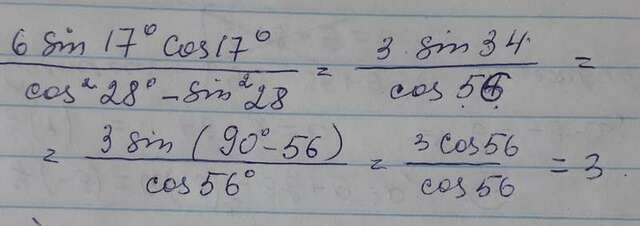 6 sin 17° cos 17° / cos² 28° - sin² 28 = 3 sin 34 / cos 56 =
= 3 sin (90° - 56) / cos 56° = 3 cos 56 / cos 56 = 3